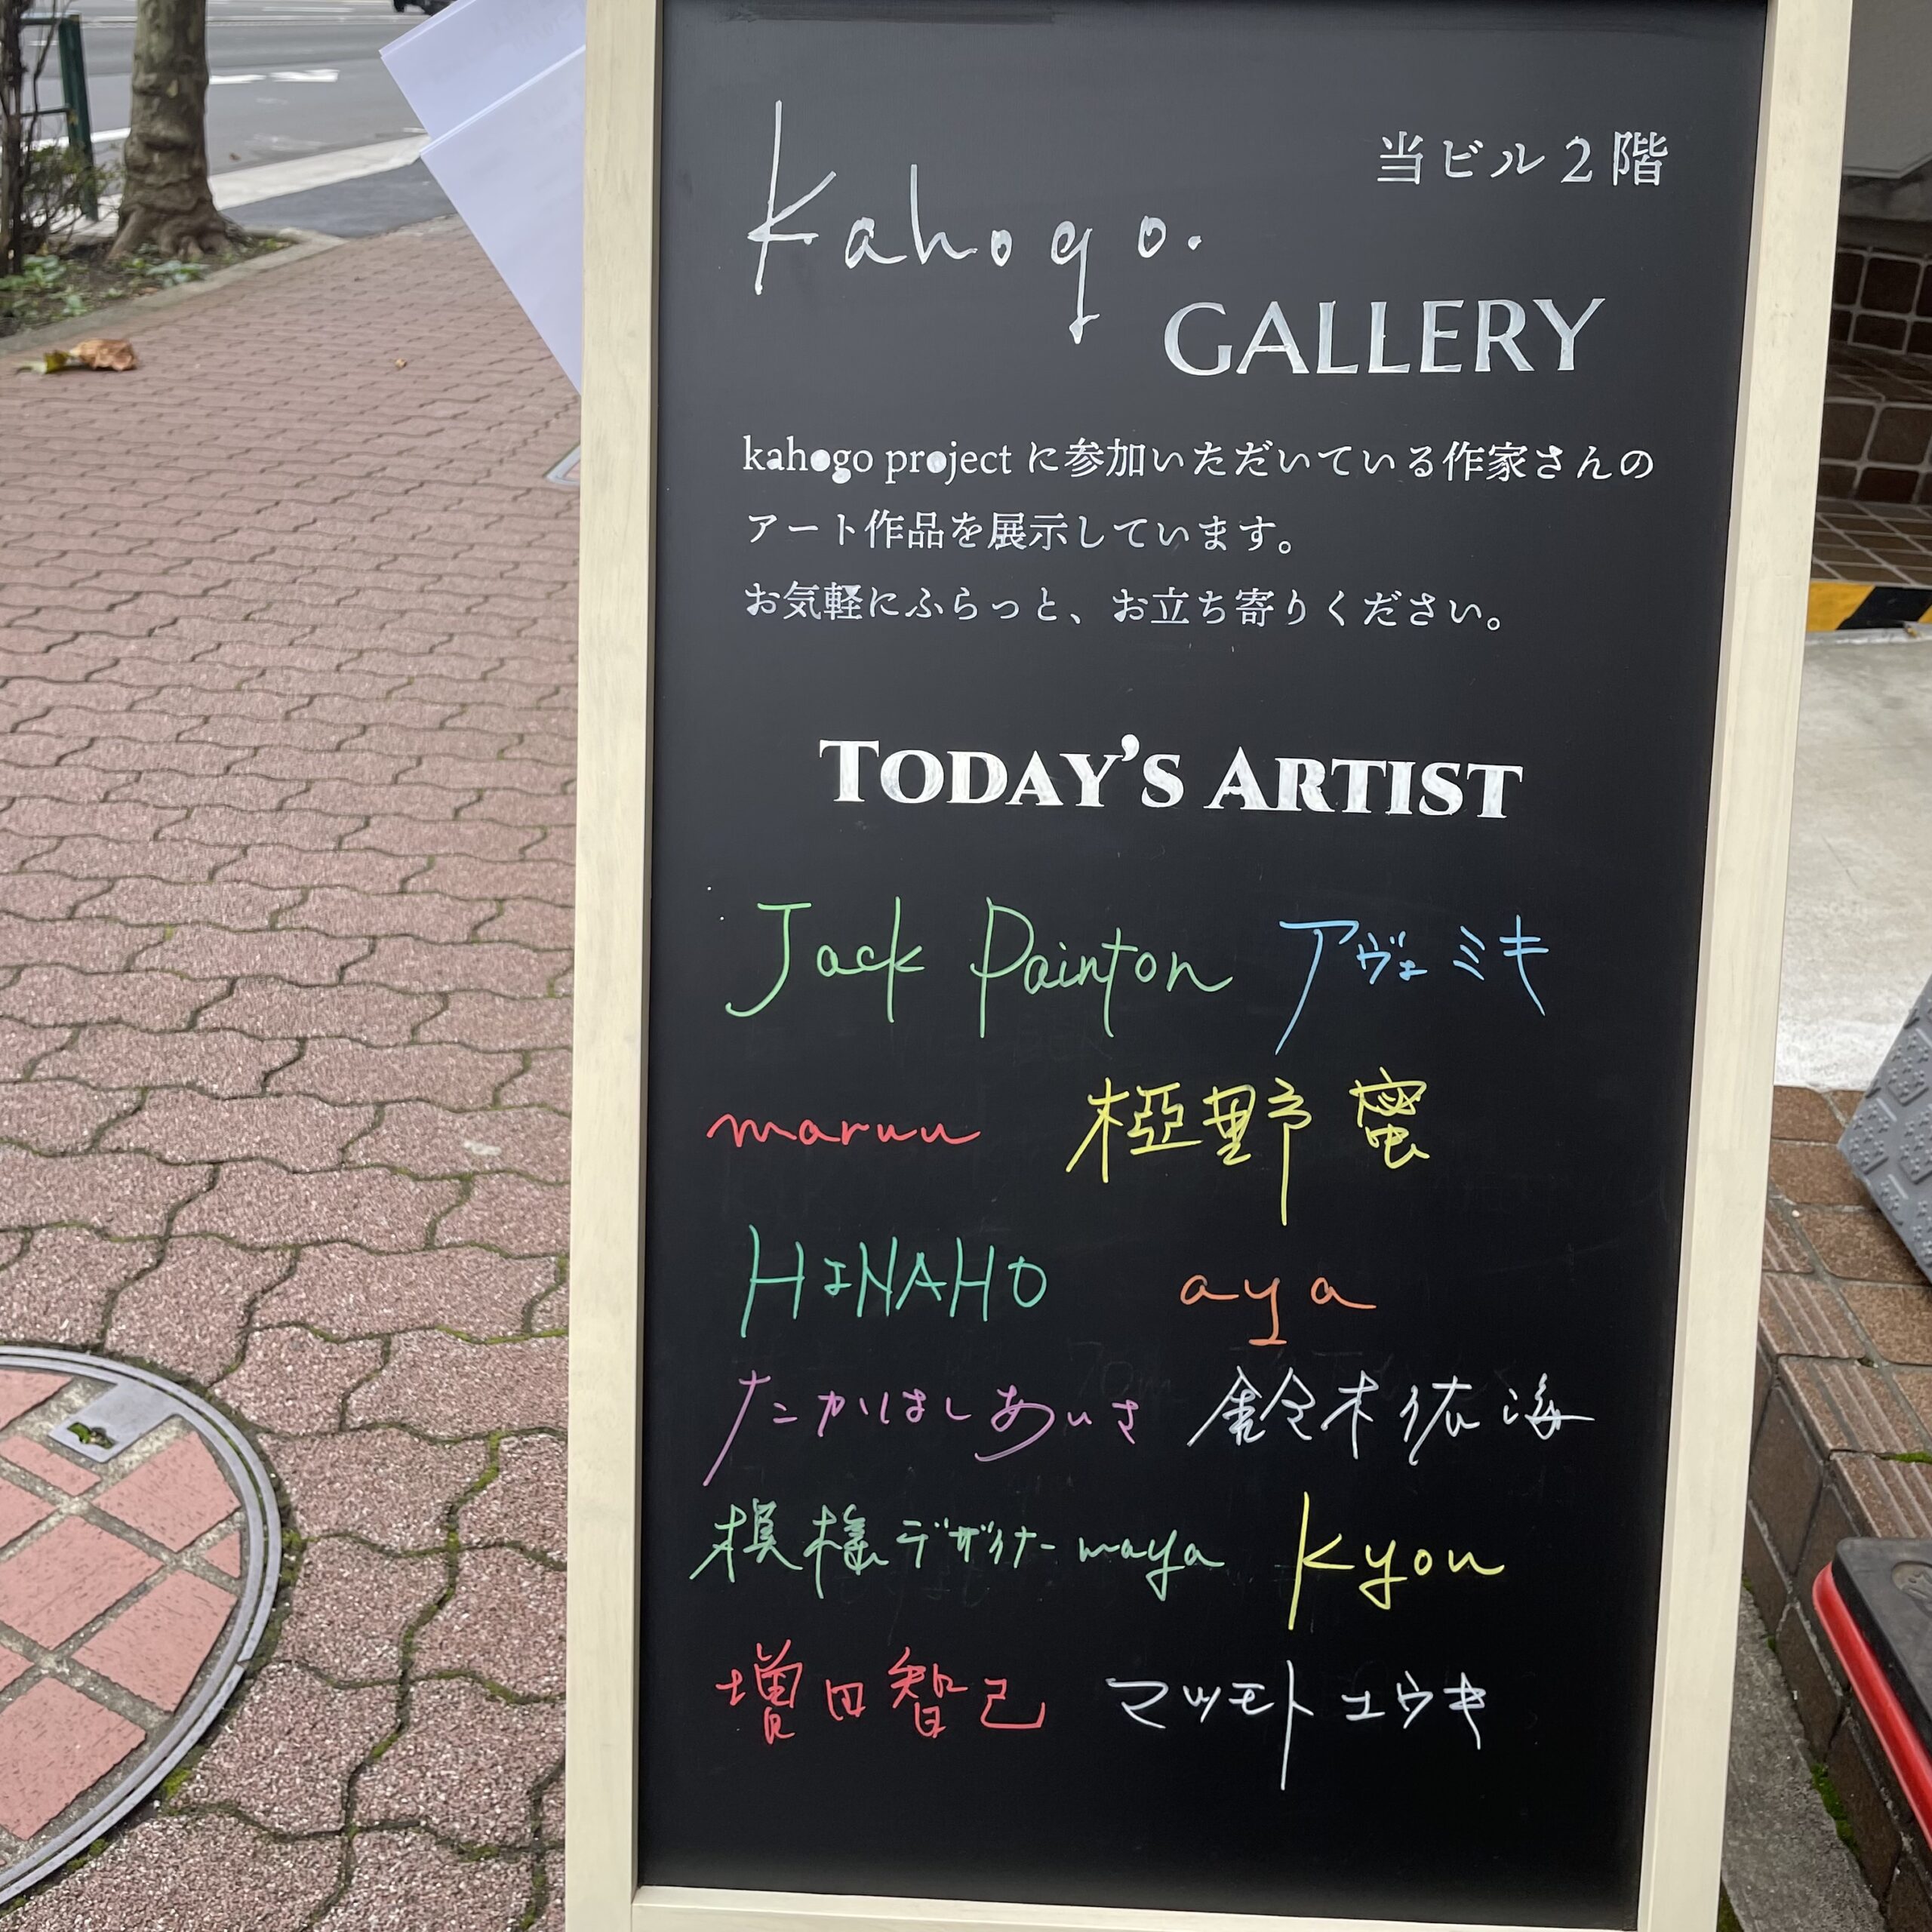 当ビル2階
kahogo.
GALLERY
kahogo project に参加いただいている作家さんの
アート作品を展示しています。
お気軽にふらっと、お立ち寄りください。
TODAY'S ARTIST
Jack Painton アヴェミキ
maruu 極野蜜
HINAHO aya
たかはしあいさ 鈴木依海
模様デザイナー maya kyou
増田智己 マツモトユウキ